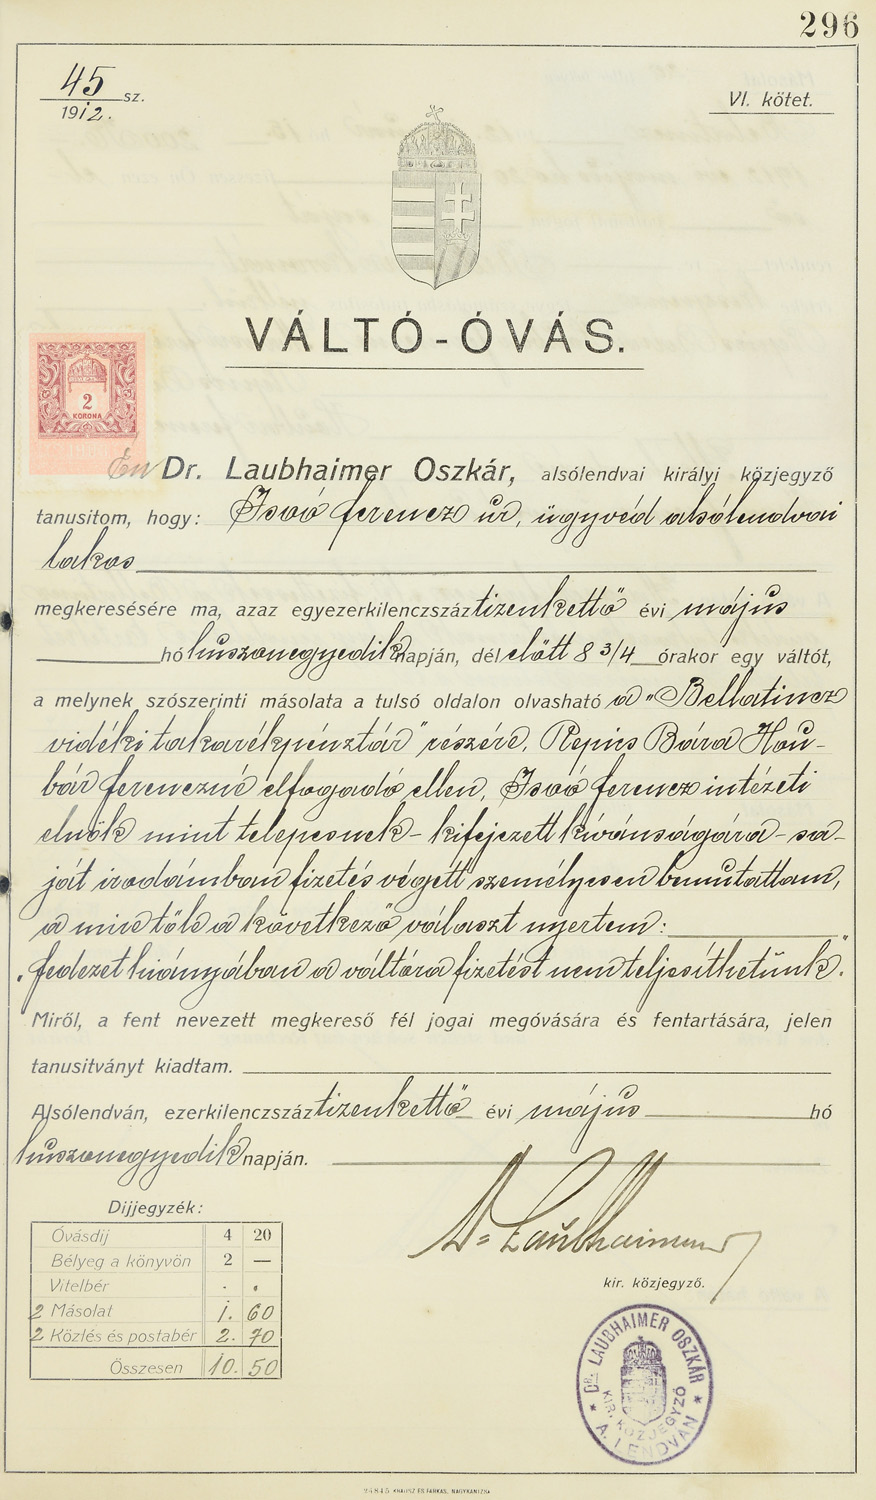 296
45
1912. sz.
VI. kötet.
VÁLTÓ-ÓVÁS.
2
KORONA
Én Dr. Laubhaimer Oszkár, alsólendvai királyi közjegyző
tanusitom, hogy: Isoó ferencz úr, ügyvéd alsólendvai
lakos
megkeresésére ma, azaz egyezerkilenczszáz tizenkettő évi május
hó huszonegyedik napján, dél előtt 8 3/4 órakor egy váltót,
a melynek szószerinti másolata a tulsó oldalon olvasható a "Bellatincz
vidéki takarékpénztár" részére, Repics Bára Hou-
bár ferenczné elfogadó ellen, Isoó ferencz intézeti
elnök mint telepesnek - kifejezett kívánságára - sa-
ját irodámban fizetés végett személyesen bemutattam,
a mire tőle a következő választ nyertem:
"fedezet hiányában a váltóra fizetést nem teljesíthetünk".
Miről, a fent nevezett megkereső fél jogai megóvására és fentartására, jelen
tanusitványt kiadtam.
Alsólendván, ezerkilenczszáz tizenkettő évi május hó
huszonegyedik napján.
Dijjegyzék:
Óvásdij 4 20
Bélyeg a könyvön 2 —
Vitelbér . .
2 Másolat 1. 60
2 Közlés és postabér 2. 70
Összesen 10. 50
Dr Laubhaimer
kir. közjegyző.
DR. LAUBHAIMER OSZKÁR
KIR. KÖZJEGYZŐ
A. LENDVÁN
KRAUSZ ÉS FARKAS, NAGYKANIZSA